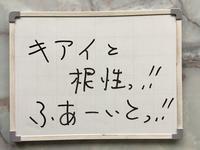 キアイと
根性っ!!
ふぁーいとっ!!